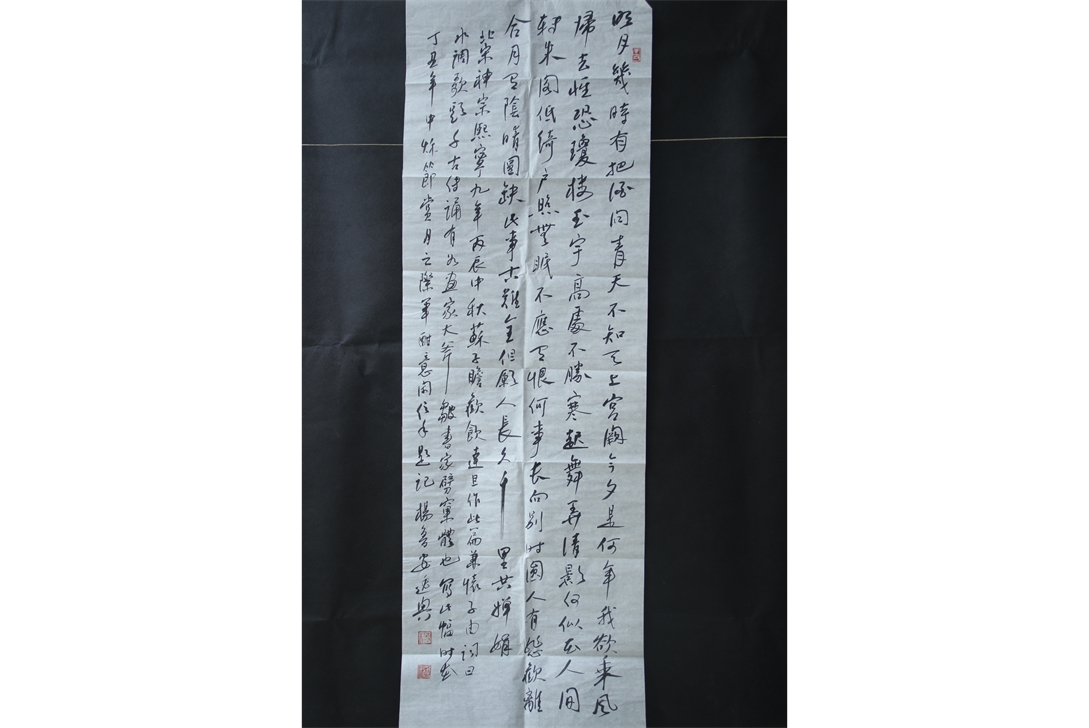 明月幾時有把酒问青天不知天上宫阙今夕是何年我欲乘风
歸去惟恐瓊樓玉宇高處不勝寒起舞弄清影何似在人间
转朱阁低绮户照無眠不應有恨何事长向别时圆人有悲歡離
合月有陰晴圆缺此事古難全但願人長久千里共嬋娟
北宋神宗熙寧九年丙辰中秋蘇子瞻歡飲達旦作此篇兼懷子由詞曰
水調歌头千古傳誦有如画家大斧皴書家劈窠體也寫此幅时在
丁丑年中秋節賞月之際酣意闲信手題記 楊魯安逸興